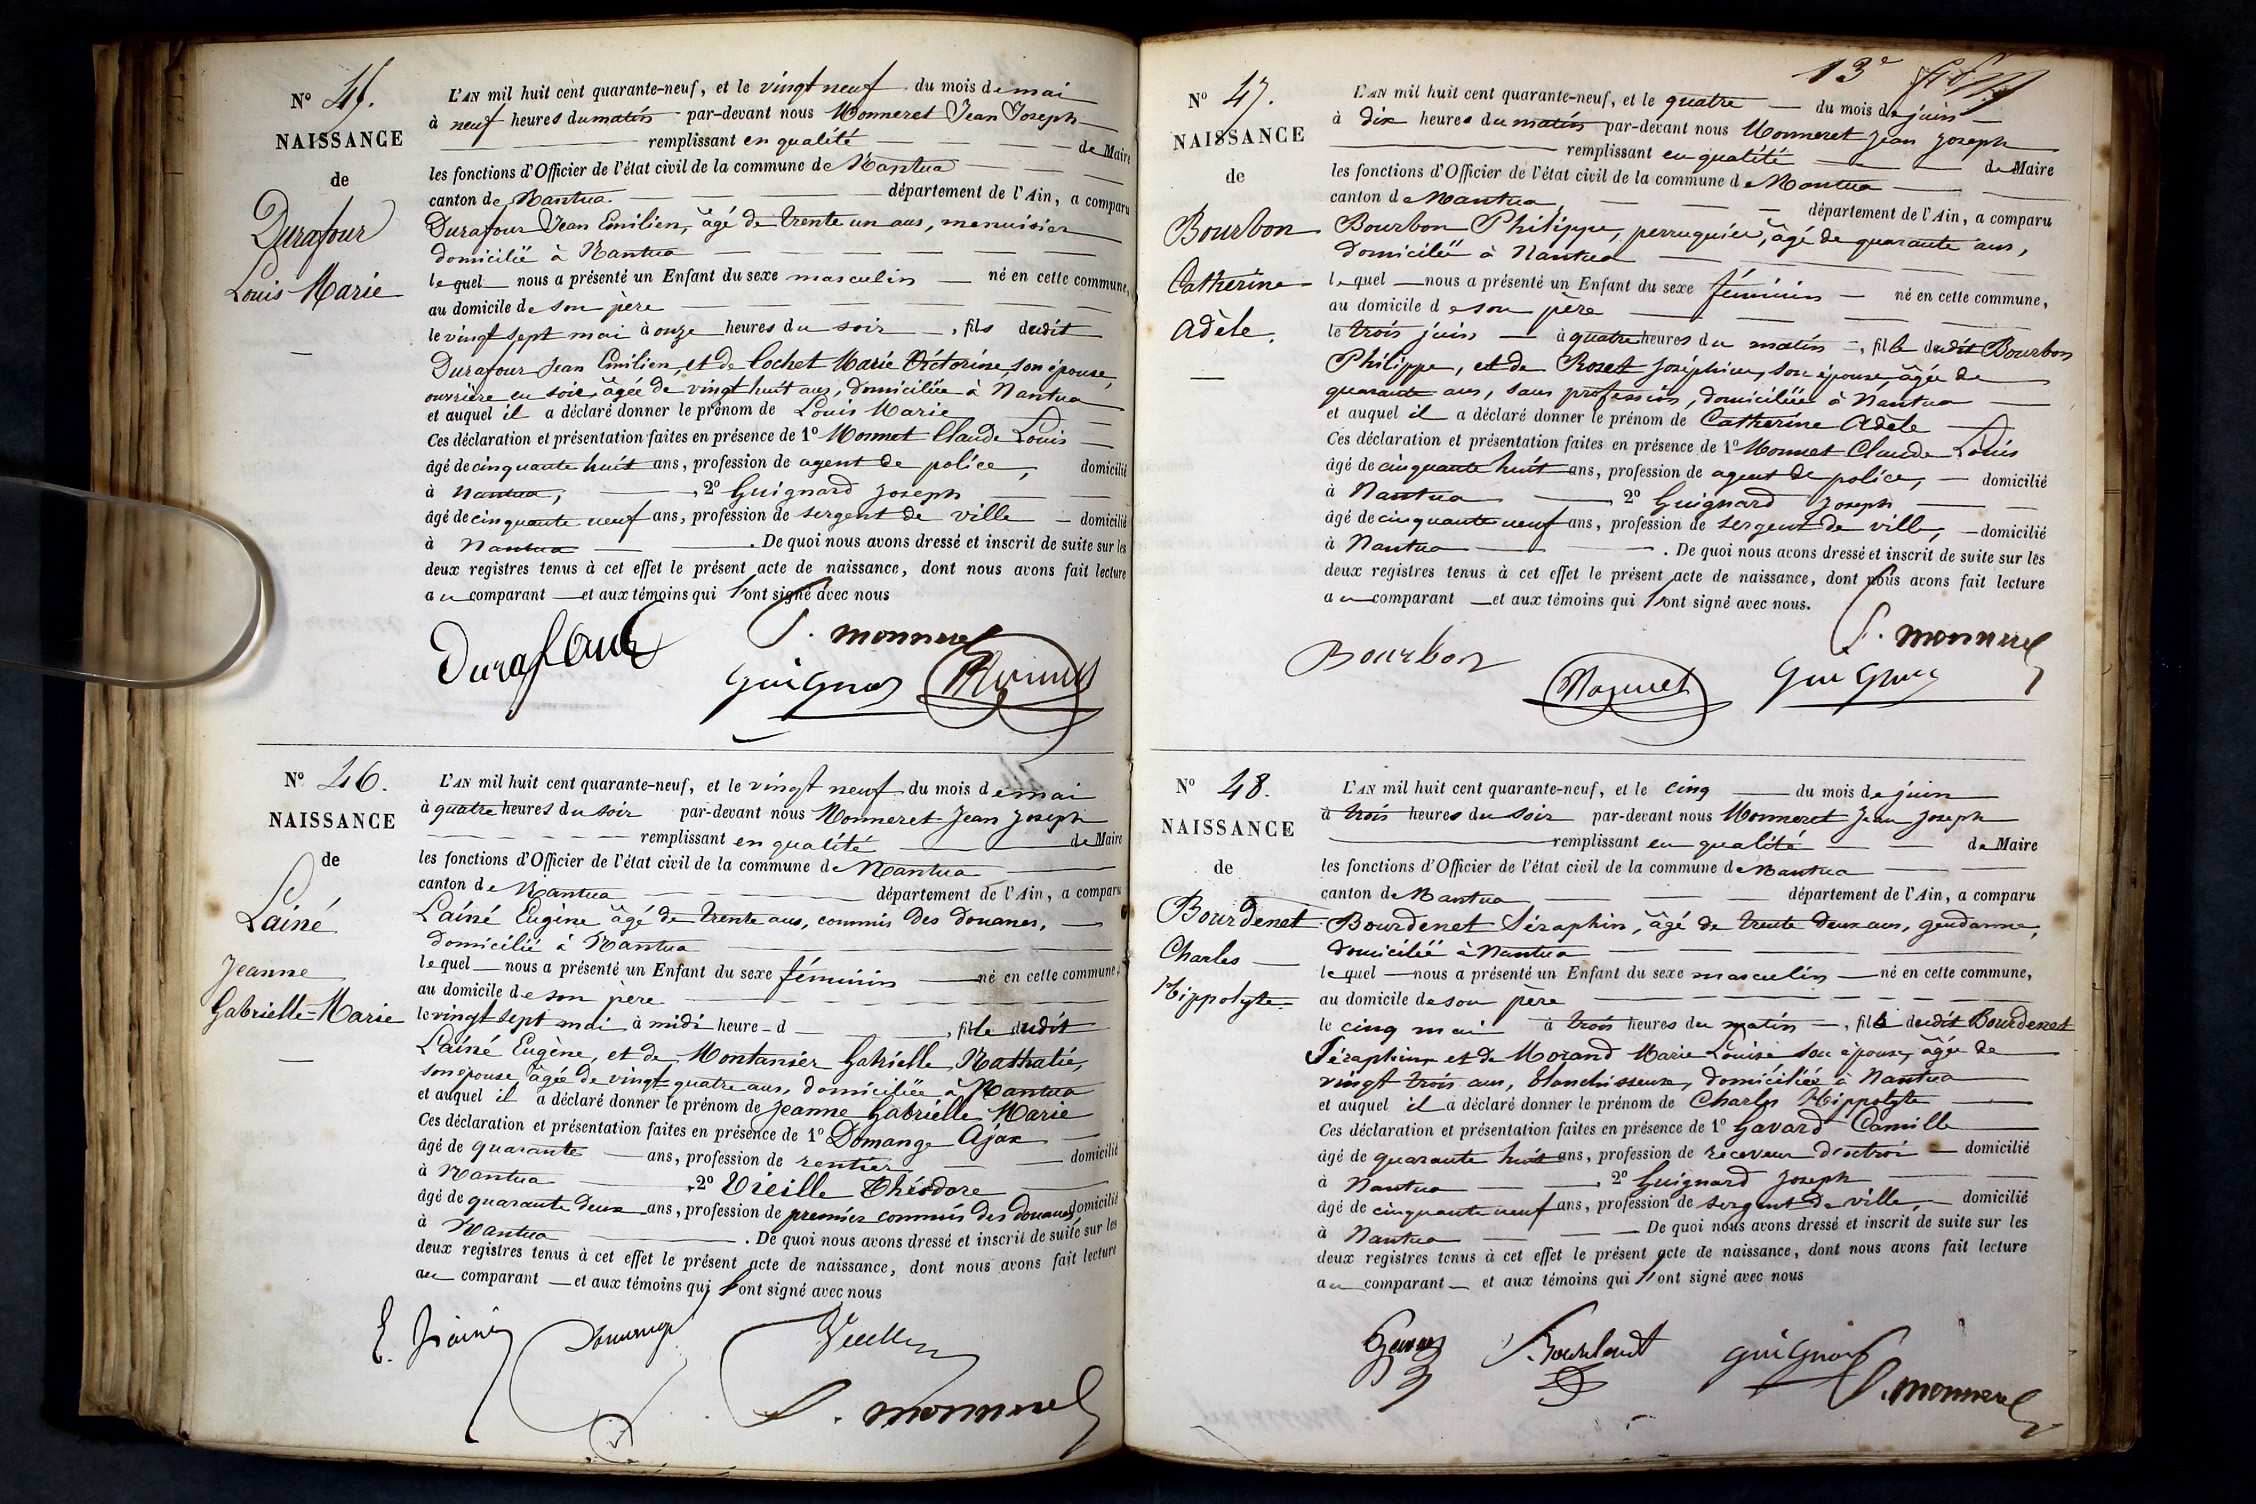 Nº 45.
NAISSANCE
de
Durafour
Louis Marie
L'AN mil huit cent quarante-neuf, et le vingt neuf du mois de mai
à neuf heures du matin par-devant nous Monneret Jean Joseph
remplissant en qualité de Maire
les fonctions d'Officier de l'état civil de la commune de Nantua
canton de Nantua département de l'Ain, a comparu
Durafour Jean Emilien, âgé de trente un ans, menuisier
domicilié à Nantua
lequel nous a présenté un Enfant du sexe masculin né en cette commune,
au domicile de son père
le vingt sept mai à onze heures du soir, fils dudit
Durafour Jean Emilien, et de Cochet Marie Victorine, son épouse,
ouvrière en soie, âgée de vingt huit ans, domiciliée à Nantua
et auquel il a déclaré donner le prénom de Louis Marie
Ces déclaration et présentation faites en présence de 1º Monnet Claude Louis
âgé de cinquante huit ans, profession de agent de police, domicilié
à Nantua, 2º Guignard Joseph
âgé de cinquante neuf ans, profession de sergent de ville domicilié
à Nantua. De quoi nous avons dressé et inscrit de suite sur les
deux registres tenus à cet effet le présent acte de naissance, dont nous avons fait lecture
au comparant et aux témoins qui l'ont signé avec nous
Durafour J. Monneret
Guignard Monnet
Nº 46.
NAISSANCE
de
Lainé
Jeanne
Gabrielle-Marie
L'AN mil huit cent quarante-neuf, et le vingt neuf du mois de mai
à quatre heures du soir par-devant nous Monneret Jean Joseph
remplissant en qualité de Maire
les fonctions d'Officier de l'état civil de la commune de Nantua
canton de Nantua département de l'Ain, a comparu
Lainé Eugène âgé de trente ans, commis des douanes,
domicilié à Nantua
lequel nous a présenté un Enfant du sexe féminin né en cette commune,
au domicile de son père
le vingt sept mai à midi heure d, fille dudit
Lainé Eugène, et de Montanier Gabrielle Nathalie,
son épouse, âgée de vingt quatre ans, domiciliée à Nantua
et auquel il a déclaré donner le prénom de Jeanne Gabrielle Marie
Ces déclaration et présentation faites en présence de 1º Domange Ajax
âgé de quarante ans, profession de rentier domicilié
à Nantua, 2º Vieille Théodore
âgé de quarante deux ans, profession de premier commis des douanes, domicilié
à Nantua. De quoi nous avons dressé et inscrit de suite sur les
deux registres tenus à cet effet le présent acte de naissance, dont nous avons fait lecture
au comparant et aux témoins qui l'ont signé avec nous
E. Lainé Domange Vieille
J. Monneret
13e
Nº 47.
NAISSANCE
de
Bourbon
Catherine
Adèle.
L'AN mil huit cent quarante-neuf, et le quatre du mois de juin
à dix heures du matin par-devant nous Monneret Jean Joseph
remplissant en qualité de Maire
les fonctions d'Officier de l'état civil de la commune de Nantua
canton de Nantua, département de l'Ain, a comparu
Bourbon Philippe, perruquier, âgé de quarante ans,
domicilié à Nantua
lequel nous a présenté un Enfant du sexe féminin né en cette commune,
au domicile de son père
le trois juin à quatre heures du matin, fille dudit Bourbon
Philippe, et de Roset Joséphine, son épouse, âgée de
quarante ans, sans profession, domiciliée à Nantua
et auquel il a déclaré donner le prénom de Catherine Adèle
Ces déclaration et présentation faites en présence de 1º Monnet Claude Louis
âgé de cinquante huit ans, profession de agent de police, domicilié
à Nantua 2º Guignard Joseph
âgé de cinquante neuf ans, profession de sergent de ville, domicilié
à Nantua. De quoi nous avons dressé et inscrit de suite sur les
deux registres tenus à cet effet le présent acte de naissance, dont nous avons fait lecture
au comparant et aux témoins qui l'ont signé avec nous.
J. Monneret
Bourbon Monnet Guignard
Nº 48.
NAISSANCE
de
Bourdenet
Charles
Hippolyte.
L'AN mil huit cent quarante-neuf, et le cinq du mois de juin
à trois heures du soir par-devant nous Monneret Jean Joseph
remplissant en qualité de Maire
les fonctions d'Officier de l'état civil de la commune de Nantua
canton de Nantua département de l'Ain, a comparu
Bourdenet Séraphin, âgé de trente deux ans, gendarme,
domicilié à Nantua
lequel nous a présenté un Enfant du sexe masculin né en cette commune,
au domicile de son père
le cinq mai à trois heures du matin, fils dudit Bourdenet
Séraphin, et de Morand Marie Louise son épouse, âgée de
vingt trois ans, blanchisseuse, domiciliée à Nantua
et auquel il a déclaré donner le prénom de Charles Hippolyte
Ces déclaration et présentation faites en présence de 1º Gavard Camille
âgé de quarante huit ans, profession de receveur d'octroi domicilié
à Nantua, 2º Guignard Joseph
âgé de cinquante neuf ans, profession de sergent de ville, domicilié
à Nantua De quoi nous avons dressé et inscrit de suite sur les
deux registres tenus à cet effet le présent acte de naissance, dont nous avons fait lecture
au comparant et aux témoins qui l'ont signé avec nous
Gavard Bourdenet Guignard
J. Monneret